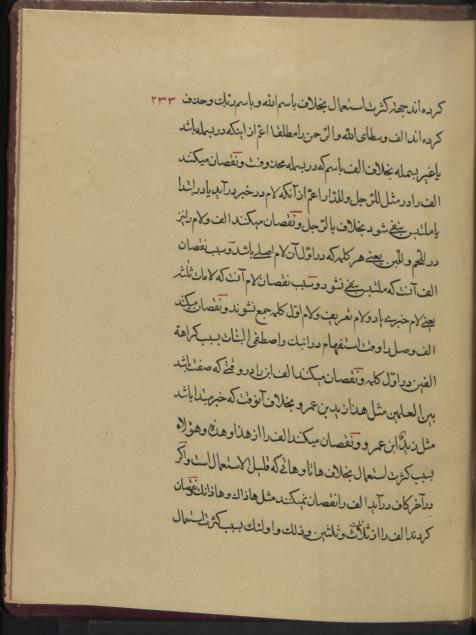 کرده اند جهة کثرت استعمال بخلاف باسم الله و باسم ربك و حذف ٢٣٣
کرده اند الف وسطای الله و الرحمن را مطلقا اعم از اینکه در بسمله باشد
یا غیر بسمله بخلاف الف باسم که در بسمله محذوفست و نقصان میکنند
الف را در مثل للرجل و للدار اعم از آنکه لام در خبر درآید یا در ابتدا
یا ملتبس بنفی شود بخلاف بالرجل و نقصان میکنند الف و لام را نیز
در للحم و للبن یعنی هر کلمه که در اول آن لام اصلی باشد و سبب نقصان
الف آنست که ملتبس بنفی نشود و سبب نقصان لام آنست که لامات ثلث
یعنی لام جر و لام تعریف و لام اول کلمه جمع نشوند و نقصان میکنند
الف وصل را وقت استفهام در ابنك و اصطفی البنات بسبب کراهة
الفین در اول کلمه و نقصان میکنند الف ابن را در وقتی که صفت باشد
بین العلمین مثل هذا زید بن عمرو بخلاف آنوقت که خبر مبتدا باشد
مثل زید ابن عمرو و نقصان میکنند الف را از هذا و هذه و هؤلاء
بسبب کثرت استعمال بخلاف هاتا و هاتی که قلیل الاستعمال است و اگر
در آخر کاف درآید الف را نقصان نمیکنند مثل هاذاك و هاذانك و نقصان
کردند الف را از ثلاث و ثلثین و ذلك و اولئك بسبب کثرت استعمال